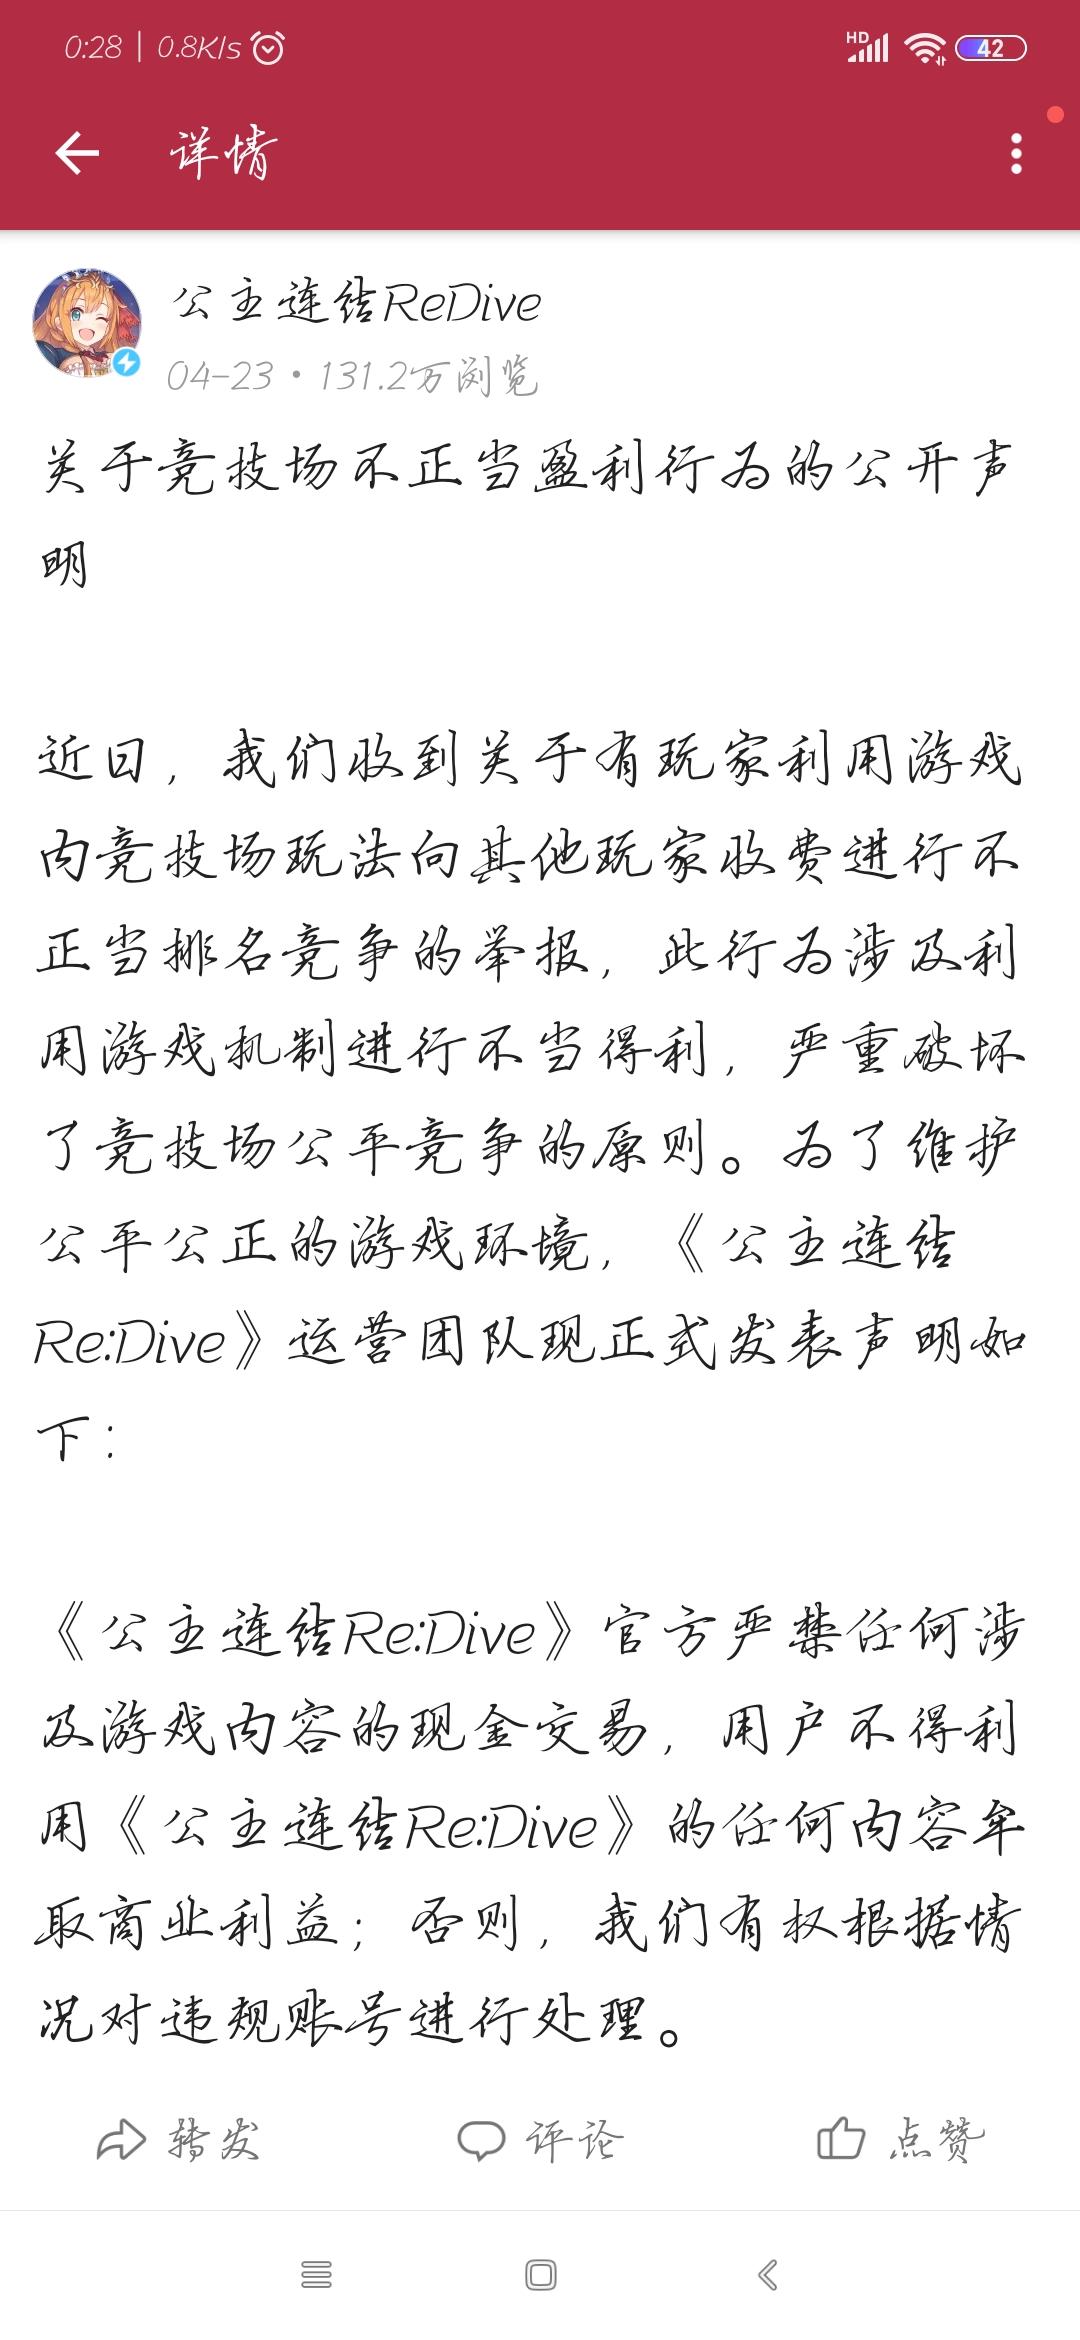 0:28 | 0.8K/s
HD
42
详情
公主连结ReDive
04-23 · 131.2万浏览
关于竞技场不正当盈利行为的公开声
明
近日，我们收到关于有玩家利用游戏
内竞技场玩法向其他玩家收费进行不
正当排名竞争的举报，此行为涉及利
用游戏机制进行不当得利，严重破坏
了竞技场公平竞争的原则。为了维护
公平公正的游戏环境，《公主连结
Re:Dive》运营团队现正式发表声明如
下：
《公主连结Re:Dive》官方严禁任何涉
及游戏内容的现金交易，用户不得利
用《公主连结Re:Dive》的任何内容牟
取商业利益；否则，我们有权根据情
况对违规账号进行处理。
转发
评论
点赞